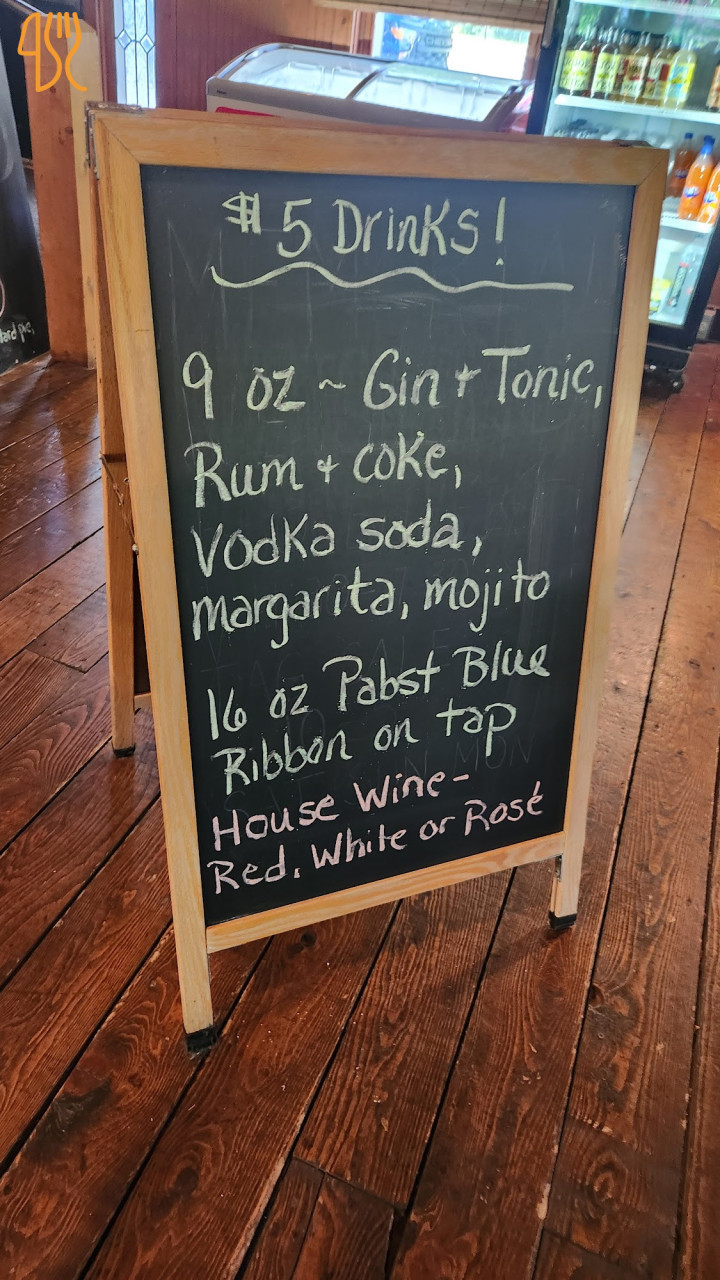 $5 Drinks!
9 oz ~ Gin + Tonic,
Rum + coke,
Vodka soda,
margarita, mojito
16 oz Pabst Blue
Ribbon on tap
House Wine -
Red, White or Rosé